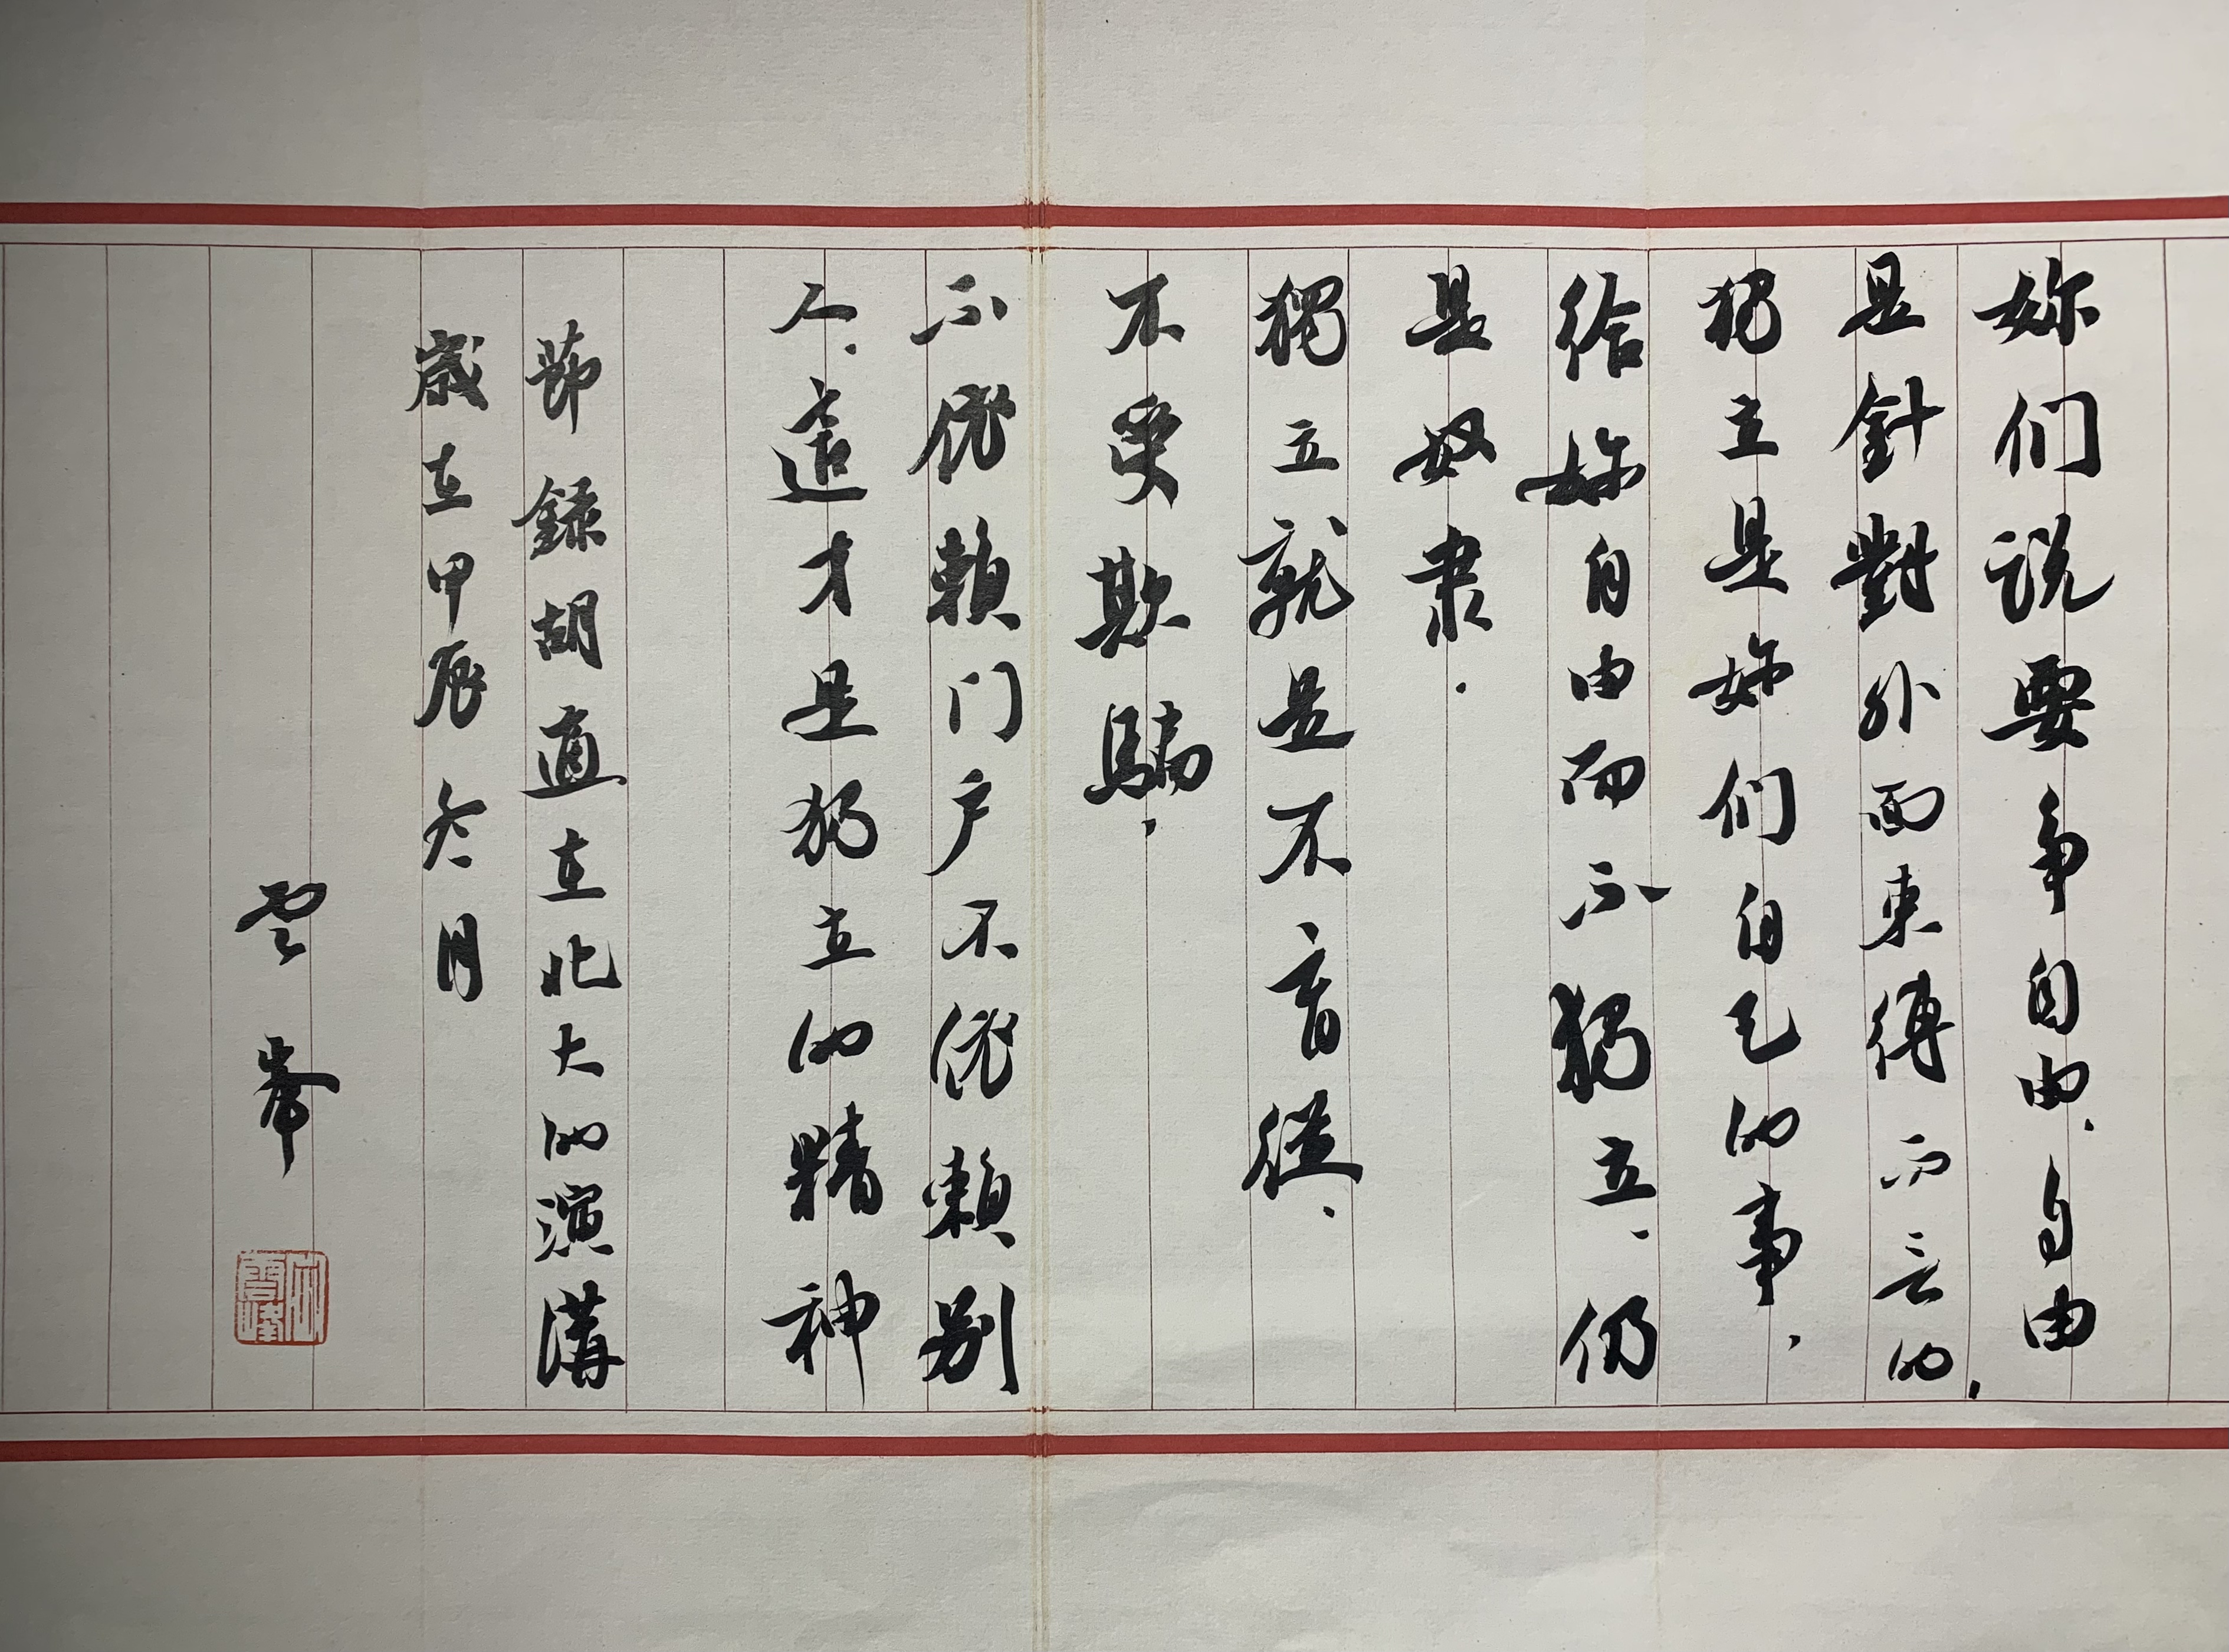 妳们说要争自由.自由
是針對外面束缚而言的,
獨立是妳们自己的事,
给妳自由而不獨立.仍
是奴隶.
獨立就是不盲從.
不受欺騙,
不依賴门户不依賴别
人.這才是獨立的精神
節録胡適在北大的演講
歲在甲辰冬月
雲峯
雲峰